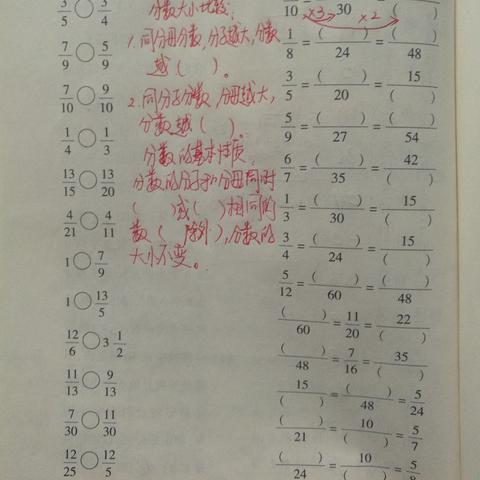 3/5 ○ 3/4
7/9 ○ 5/9
7/10 ○ 9/10
1/4 ○ 1/3
13/15 ○ 13/20
4/21 ○ 4/11
1 ○ 7/9
1 ○ 13/5
12/6 ○ 3 1/2
11/13 ○ 9/13
7/30 ○ 11/30
12/25 ○ 12/5
分数大小比较:
1.同分母分数,分子越大,分数
越( )。
2.同分子分数,分母越大,
分数越( )。
分数的基本性质:
分数的分子和分母同时
( )或( )相同的
数( 除外),分数的
大小不变。
×3 ×2
/10 = /30 = /( )
1/8 = ( )/24 = ( )/48
3/5 = ( )/20 = 15/( )
5/9 = ( )/27 = ( )/54
6/7 = ( )/35 = 42/( )
1/3 = ( )/30 = 15/( )
3/4 = ( )/24 = 15/( )
5/12 = ( )/60 = ( )/48
( )/60 = 11/20 = 22/( )
( )/48 = 7/16 = 35/( )
15/( ) = ( )/48 = 5/24
( )/21 = 10/( ) = 5/7
( )/24 = 10/( ) = 5/8